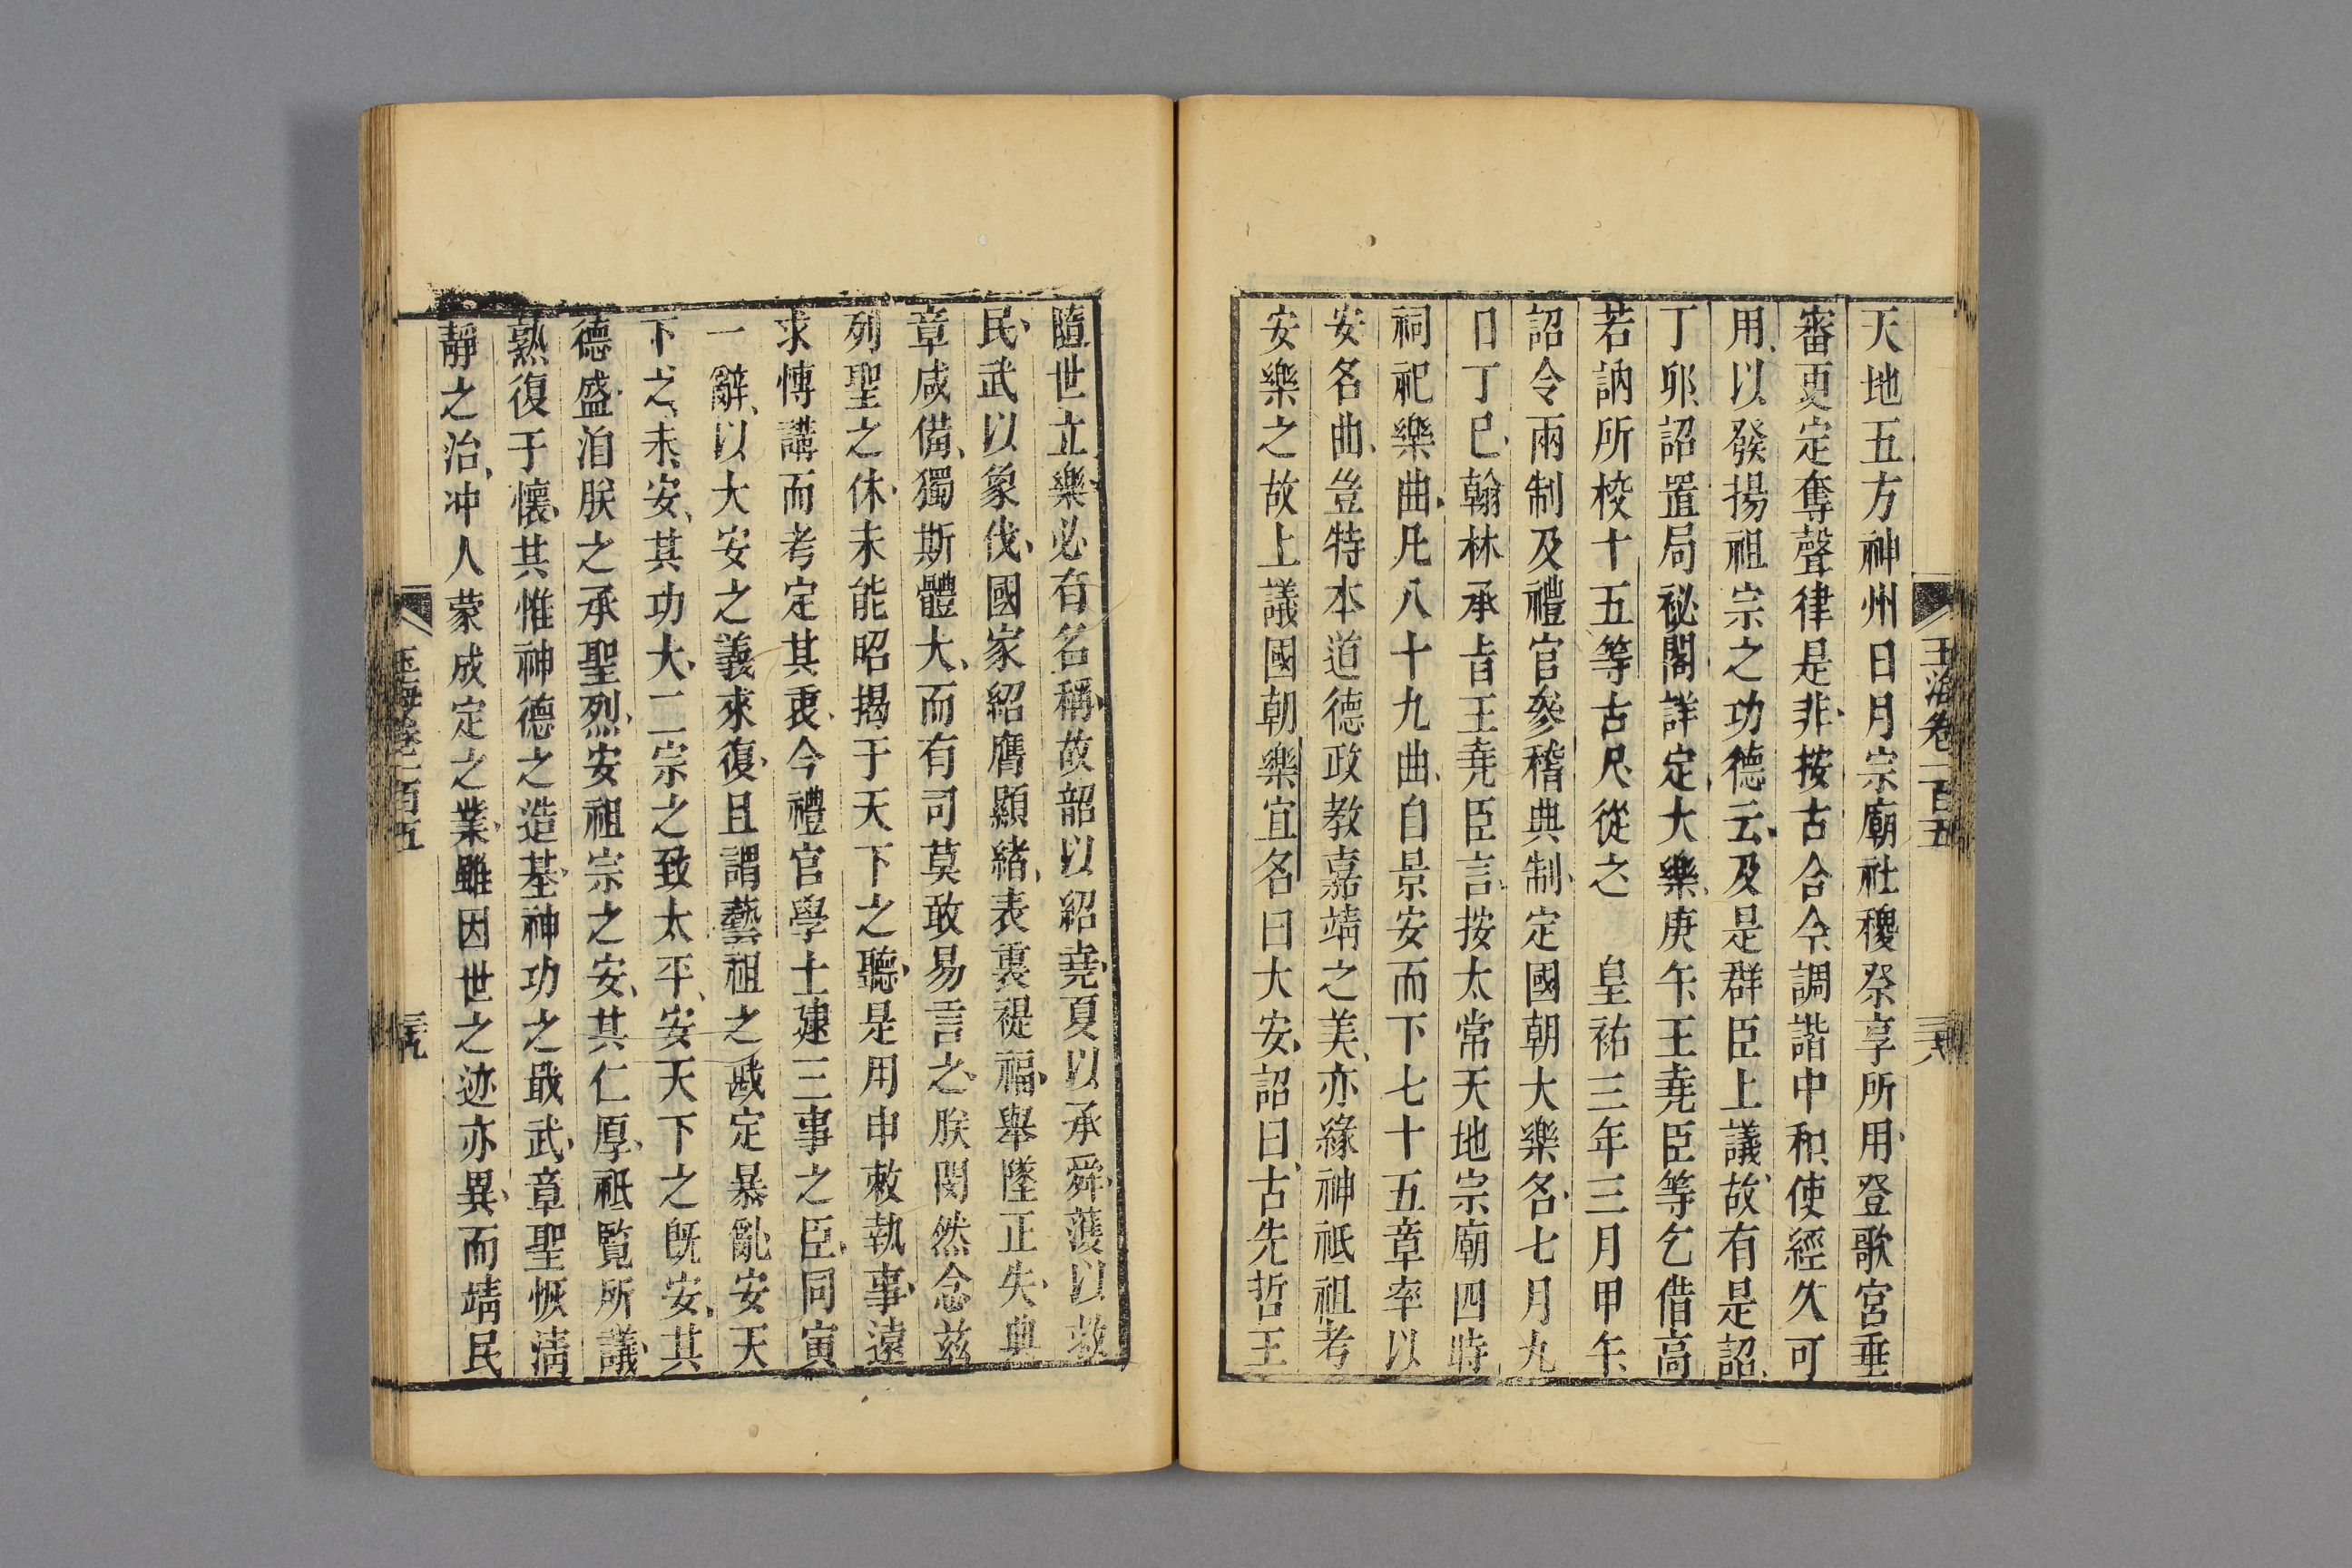 玉海卷一百五
天地五方神州日月宗廟社稷祭享所用登歌宮垂
審更定奪聲律是非按古合今調諧中和使經久可
用以發揚祖宗之功德云及是群臣上議故有是詔
丁卯詔置局祕閣詳定大樂庚午王堯臣等乞借高
若訥所校十五等古尺從之　皇祐三年三月甲午
詔令兩制及禮官參稽典制定國朝大樂名七月九
日丁巳翰林承旨王堯臣言按太常天地宗廟四時
祠祀樂曲凡八十九曲自景安而下七十五章率以
安名曲豈特本道德政教嘉靖之美亦緣神祗祖考
安樂之故上議國朝樂宜名曰大安詔曰古先哲王
隨世立樂必有名稱故韶以紹堯夏以承舜濩以救
民武以象伐國家紹膺顯緒表裏禔福舉墜正失典
章咸備獨斯體大而有司莫敢易言之朕閔然念茲
列聖之休未能昭揭于天下之聽是用申敕執事遠
求慱講而考定其衷今禮官學士建三事之臣同寅
一辭以大安之義來復且謂藝祖之戡定暴亂安天
下之未安其功大二宗之致太平安天下之旣安其
德盛洎朕之承聖烈安祖宗之安其仁厚祗覧所議
熟復于懷其惟神德之造基神功之戢武章聖恢清
靜之治冲人蒙成定之業雖因世之迹亦異而靖民
玉海卷一百五